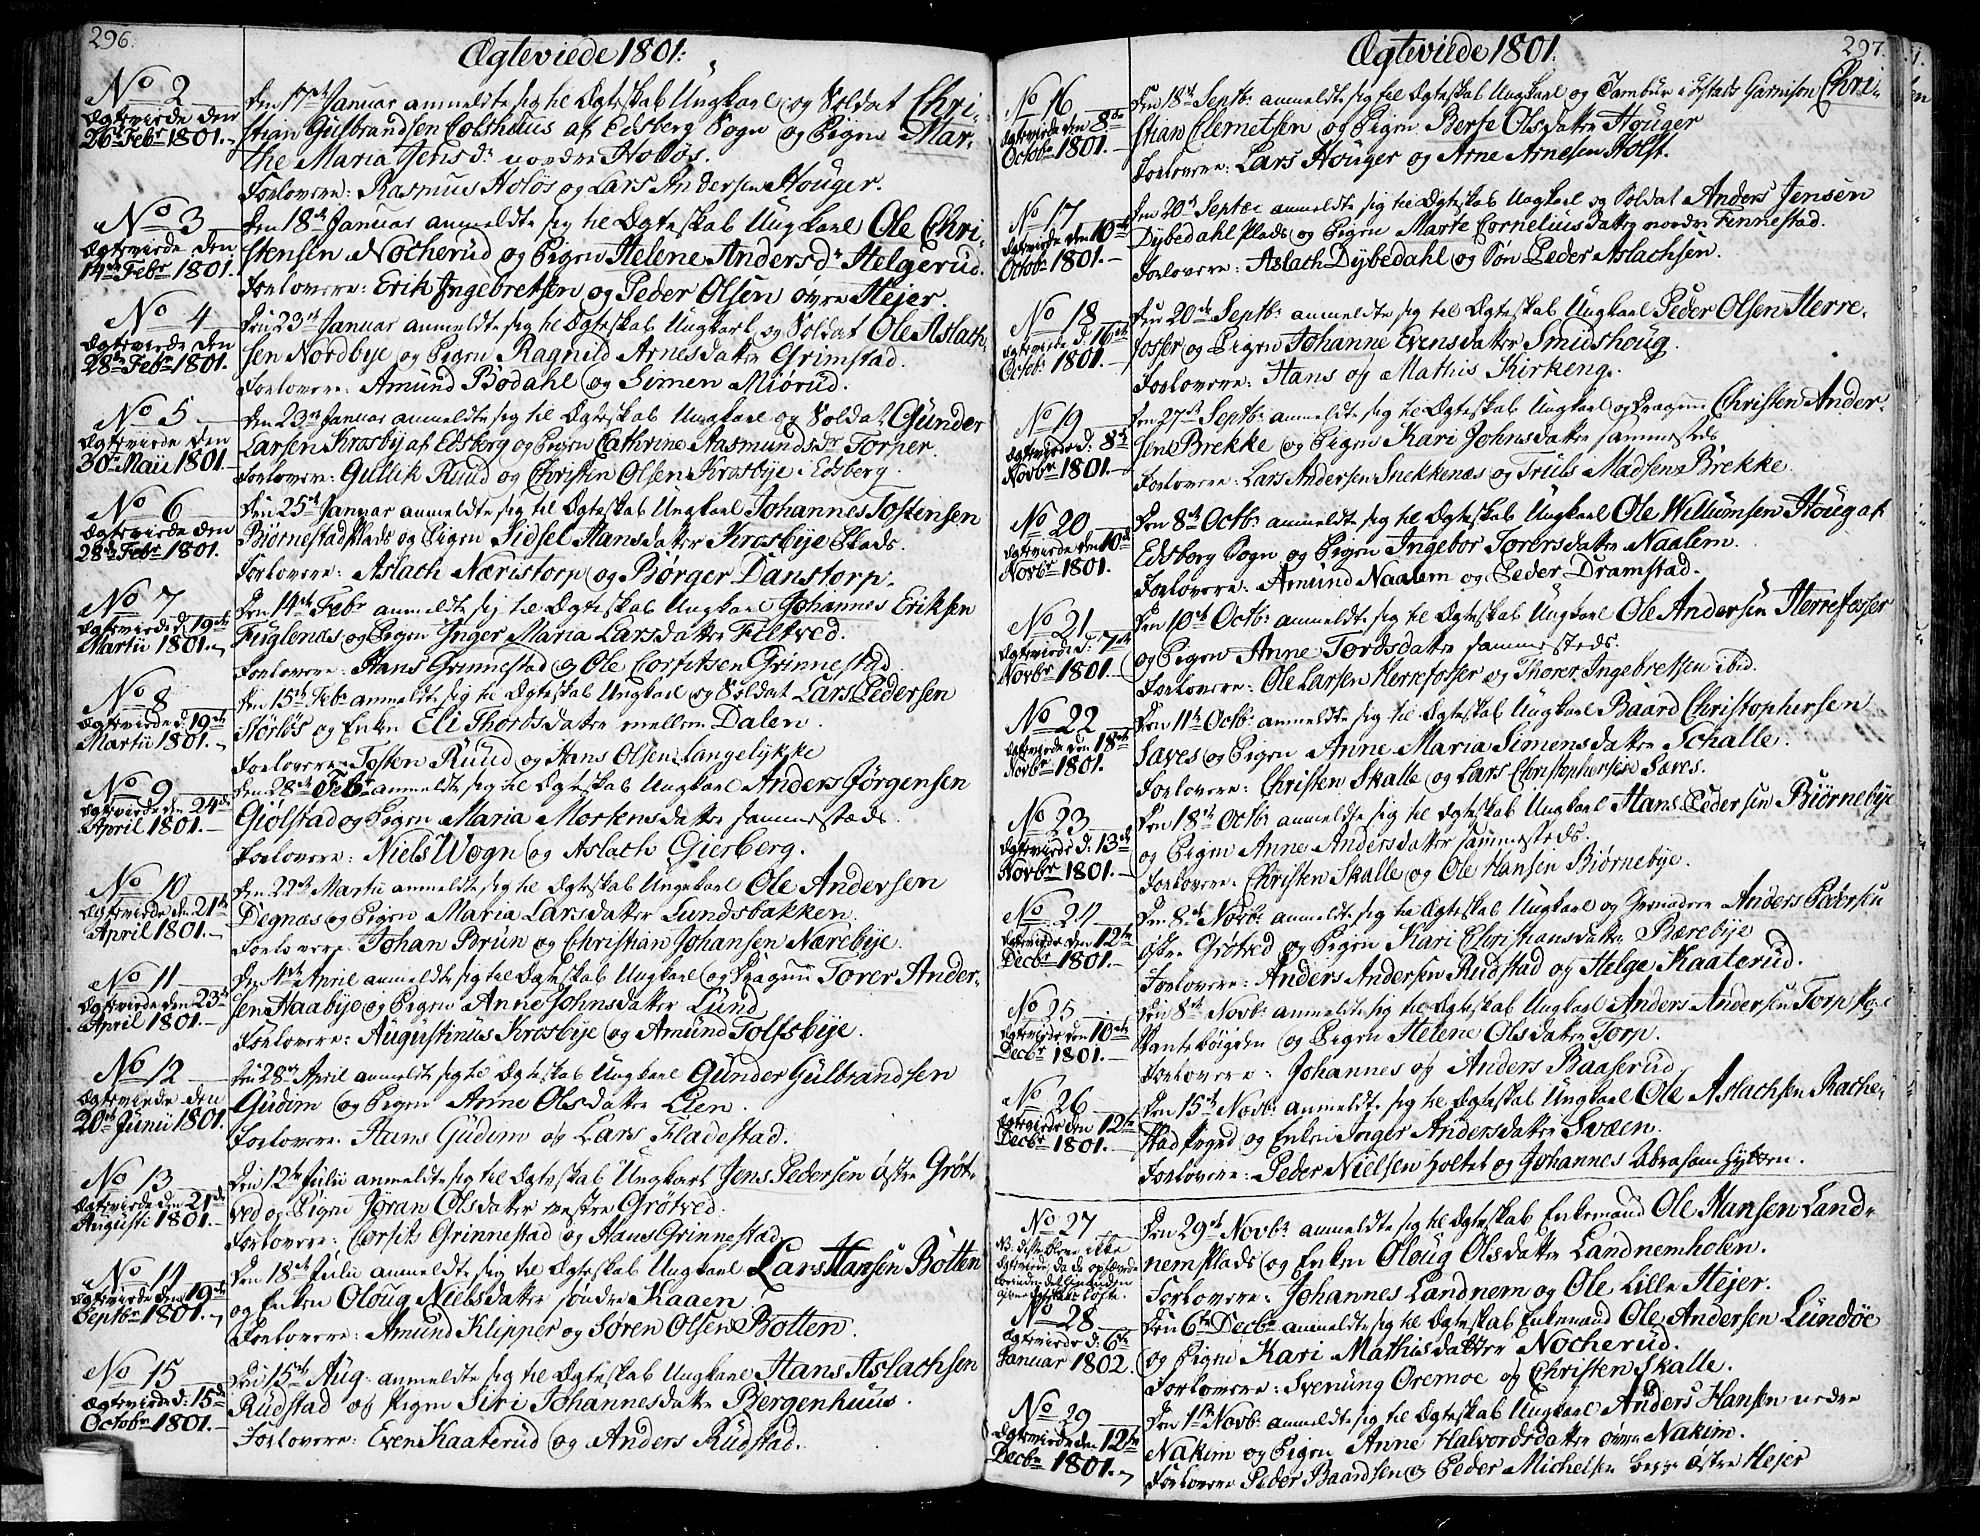 296.
Ægteviede 1801:
No 2
Ægteviede den
26de Febr 1801.
Den 17de Januar anmeldte sig til Ægteskab Ungkarl og Soldat Chri-
stian Gulbrandsen Colshuus af Edsberg Sogn og Pigen Mar-
the Maria Jensdr nordre Holøs.
Forlovere: Rasmus Holøs og Lars Andersen Houger.
No 3
Ægteviede den
14de Febr 1801.
Den 18de Januar anmeldte sig til Ægteskab Ungkarl Ole Chri-
stensen Nocherud og Pigen Helene Andersdr Helgerud.
Forlovere: Erik Ingebretsen og Peder Olsen øvre Hejer.
No 4
Ægteviede den
28de Febr 1801.
Den 23de Januar anmeldte sig til Ægteskab Ungkarl og Soldat Ole Aslach-
sen Nordbye og Pigen Ragnild Arnesdatter Grimstad.
Forlovere: Amund Bødahl og Simen Miørud.
No 5
Ægteviede den
30te Maii 1801.
Den 23de Januar anmeldte sig til Ægteskab Ungkarl og Soldat Gunder
Larsen Krosby af Edsberg og Pigen Cathrine Aasmundsdr Torper.
Forlovere: Gullik Ruud og Christen Olsen Krosbye i Edsberg.
No 6
Ægteviede den
28de Febr 1801.
Den 25de Januar anmeldte sig til Ægteskab Ungkarl Johannes Tostensen
Biørnestad Plads og Pigen Sidsel Hansdatter Krosbye Plads.
Forlovere: Aslach Næristorp og Børger Danstorp.
No 7
Ægteviede d. 19de
Martii 1801.
Den 14de Febr anmeldte sig til Ægteskab Ungkarl Johannes Eriksen
Fuglenæs og Pigen Inger Maria Larsdatter Filtved.
Forlovere: Hans Grinnestad og Ole Corfitsen Grinnestad.
No 8
Ægteviede d. 19de
Martii 1801.
Den 15de Febr anmeldte sig til Ægteskab Ungkarl og Soldat Lars Pedersen
Størløs og Enken Eli Thordsdatter mellem Dalen.
Forlovere: Tosten Ruud og Hans Olsen Langelykke
No 9
Ægteviede den 24de
April 1801.
Den 28de Febr anmeldte sig til Ægteskab Ungkarl Anders Jørgensen
Giølstad og Pigen Maria Mortensdatter sammesteds.
Forlovere: Niels Wogn og Aslach Gierberg.
No 10
Ægteviede den 21de
April 1801.
Den 22de Martii anmeldte sig til Ægteskab Ungkarl Ole Andersen
Degnæs og Pigen Maria Larsdatter Lundsbakken.
Forlovere: Johan Brun og Christian Johansen Nærebye.
No 11
Ægteviede den 23de
April 1801.
Den 4de April anmeldte sig til Ægteskab Ungkarl og Dragun Torer Ander-
sen Haabye og Pigen Anne Johnsdatter Lund
Forlovere: Augustinus Krosbye og Amund Tolfsbye.
No 12
Ægteviede den
20de Junii 1801.
Den 28de April anmeldte sig til Ægteskab Ungkarl Gunder Gulbrandsen
Gudim og Pigen Anne Olsdatter Lien.
Forlovere: Hans Gudim og Lars Fladestad.
No 13
Ægteviede den 21de
Augusti 1801.
Den 12te Julii anmeldte sig til Ægteskab Ungkarl Jens Pedersen østre Grøt-
ved og Pigen Jøran Olsdatter vestre Grøtved.
Forlovere: Corfits Grinnestad og Hans Grinnestad
No 14
Ægteviede den 19de
Septbr 1801.
Den 18de Julii anmeldte sig til Ægteskab Ungkarl Lars Hansen Botten
og Enken Oloug Nielsdatter søndre Kaaen.
Forlovere: Amund Klipper og Søren Olsen Botten.
No 15
Ægteviede d: 15de
Octobr 1801.
Den 15de Aug: anmeldte sig til Ægteskab Ungkarl Hans Aslachsen
Rudstad og Pigen Siri Johannesdatter Bergenhuus.
Forlovere: Even Kaaterud og Anders Rudstad.
297.
Ægteviede 1801.
No 16
Ægteviede den 8de
Octobr 1801.
Den 18de Septbr anmeldte sig til Ægteskab Ungkarl og Tambur i Fstads Garnison Chri-
stian Clemetsen og Pigen Berte Olsdatter Houger
Forlovere: Lars Houger og Arne Arnesen Holst.
No 17
Ægteviede den 10de
Octobr 1801.
Den 20de Septbr anmeldte sig til Ægteskab Ungkarl og Soldat Anders Jensen
Dybedahl Plads og Pigen Marte Corneliusdatter nordre Finnestad.
Forlovere: Aslach Dybedahl og Søn Peder Aslachsen.
No 18
Ægteviede d. 16de
Octobr 1801.
Den 20de Septbr anmeldte sig til Ægteskab Ungkarl Peder Olsen Herre-
fosser og Pigen Johanne Evensdatter Smidshoug.
Forlovere: Hans og Mathis Kirkeng.
No 19
Ægteviede d. 8de
Novbr 1801.
Den 27de Septbr anmeldte sig til Ægteskab Ungkarl og Dragun Christen Ander-
sen Brekke og Pigen Kari Johnsdatter sammesteds
Forlovere: Lars Andersen Snekkenæs og Truls Madsen Brekke.
No 20
Ægteviede den 10de
Novbr 1801.
Den 8de Octbr anmeldte sig til Ægteskab Ungkarl Ole Willumsen Houg af
Edsberg Sogn og Pigen Ingebor Torersdatter Naalem.
Forlovere: Amund Naalem og Peder Dramstad.
No 21
Ægteviede d: 7de
Novbr 1801.
Den 10de Octbr anmeldte sig til Ægteskab Ungkarl Ole Andersen Herrefosser
og Pigen Anne Tordsdatter sammesteds.
Forlovere: Ole Larsen Herrefosser og Thorer Ingebretsen ibid.
No 22
Ægteviede den 18de
Novbr 1801.
Den 11te Octbr anmeldte sig til Ægteskab Ungkarl Baard Christophersen
Saxes og Pigen Anne Maria Simensdatter Schalle.
Forlovere: Christen Skalle og Lars Christophersen Saxes.
No 23
Ægteviede d. 13de
Novbr 1801.
Den 18de Octbr anmeldte sig til Ægteskab Ungkarl Hans Pedersen Biørnebye
og Pigen Anne Andersdatter sammesteds.
Forlovere: Christen Skalle og Ole Hansen Biørnebye.
No 24
Ægteviede den 12te
Decbr 1801.
Den 8de Novbr anmeldte sig til Ægteskab Ungkarl og Grenadeer Anders Pedersen
østre Grøtvd og Pigen Kari Christiansdatter Bærebye
Forlovere: Anders Andersen Rudstad og Helge Kaaterud.
No 25
Ægteviede den 10de
Decbr 1801.
Den 8de Novbr anmeldte sig til Ægteskab Ungkarl Anders Andersen Torp
og Pigen Helene Olsdatter Torp.
Forlovere: Johannes og Anders Baaserud.
No 26
Ægteviede den 12te
Decbr 1801.
Den 15de Novbr anmeldte sig til Ægteskab Ungkarl Ole Aslachsen Rache-
stad og Enken Inger Andersdatter Svæen.
Forlovere: Peder Nielsen Holtet og Johannes Abrahams Hytten.
No 27
NB: disse bleve ikke
Ægteviede, da de ophævede
Den 29de Novbr anmeldte sig til Ægteskab Enkemand Ole Hansen Land-
nem Plads og Enken Oloug Olsdatter Landnemholen.
Forlovere: Johannes Landnem og Ole Lille Hejer.
No 28
Ægteviede d. 6te
Januar 1802.
Den 6te Decbr anmeldte sig til Ægteskab Enkemand Ole Andersen Lundøe
og Pigen Kari Mathisdatter Nocherud.
Forlovere: Svenung Oremoe og Christen Skalle.
No 29
Ægteviede den 12te
Decbr 1801.
Den 1ste Novbr anmeldte sig til Ægteskab Ungkarl Anders Hansen nedre
Nakim og Pigen Anne Halvordsdatter øvre Nakim.
Forlovere Peder Baardsen og Peder Michelsen begge østre Hejer